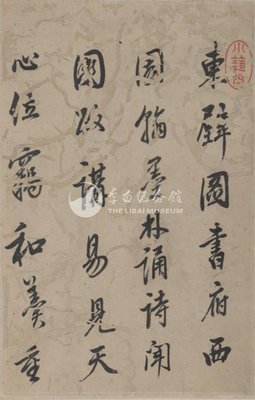 東壁圖書府西
園翰墨林誦詩聞
國政講易見天
心位竊和羹重
李白纪念馆
THE LIBAI MUSEUM